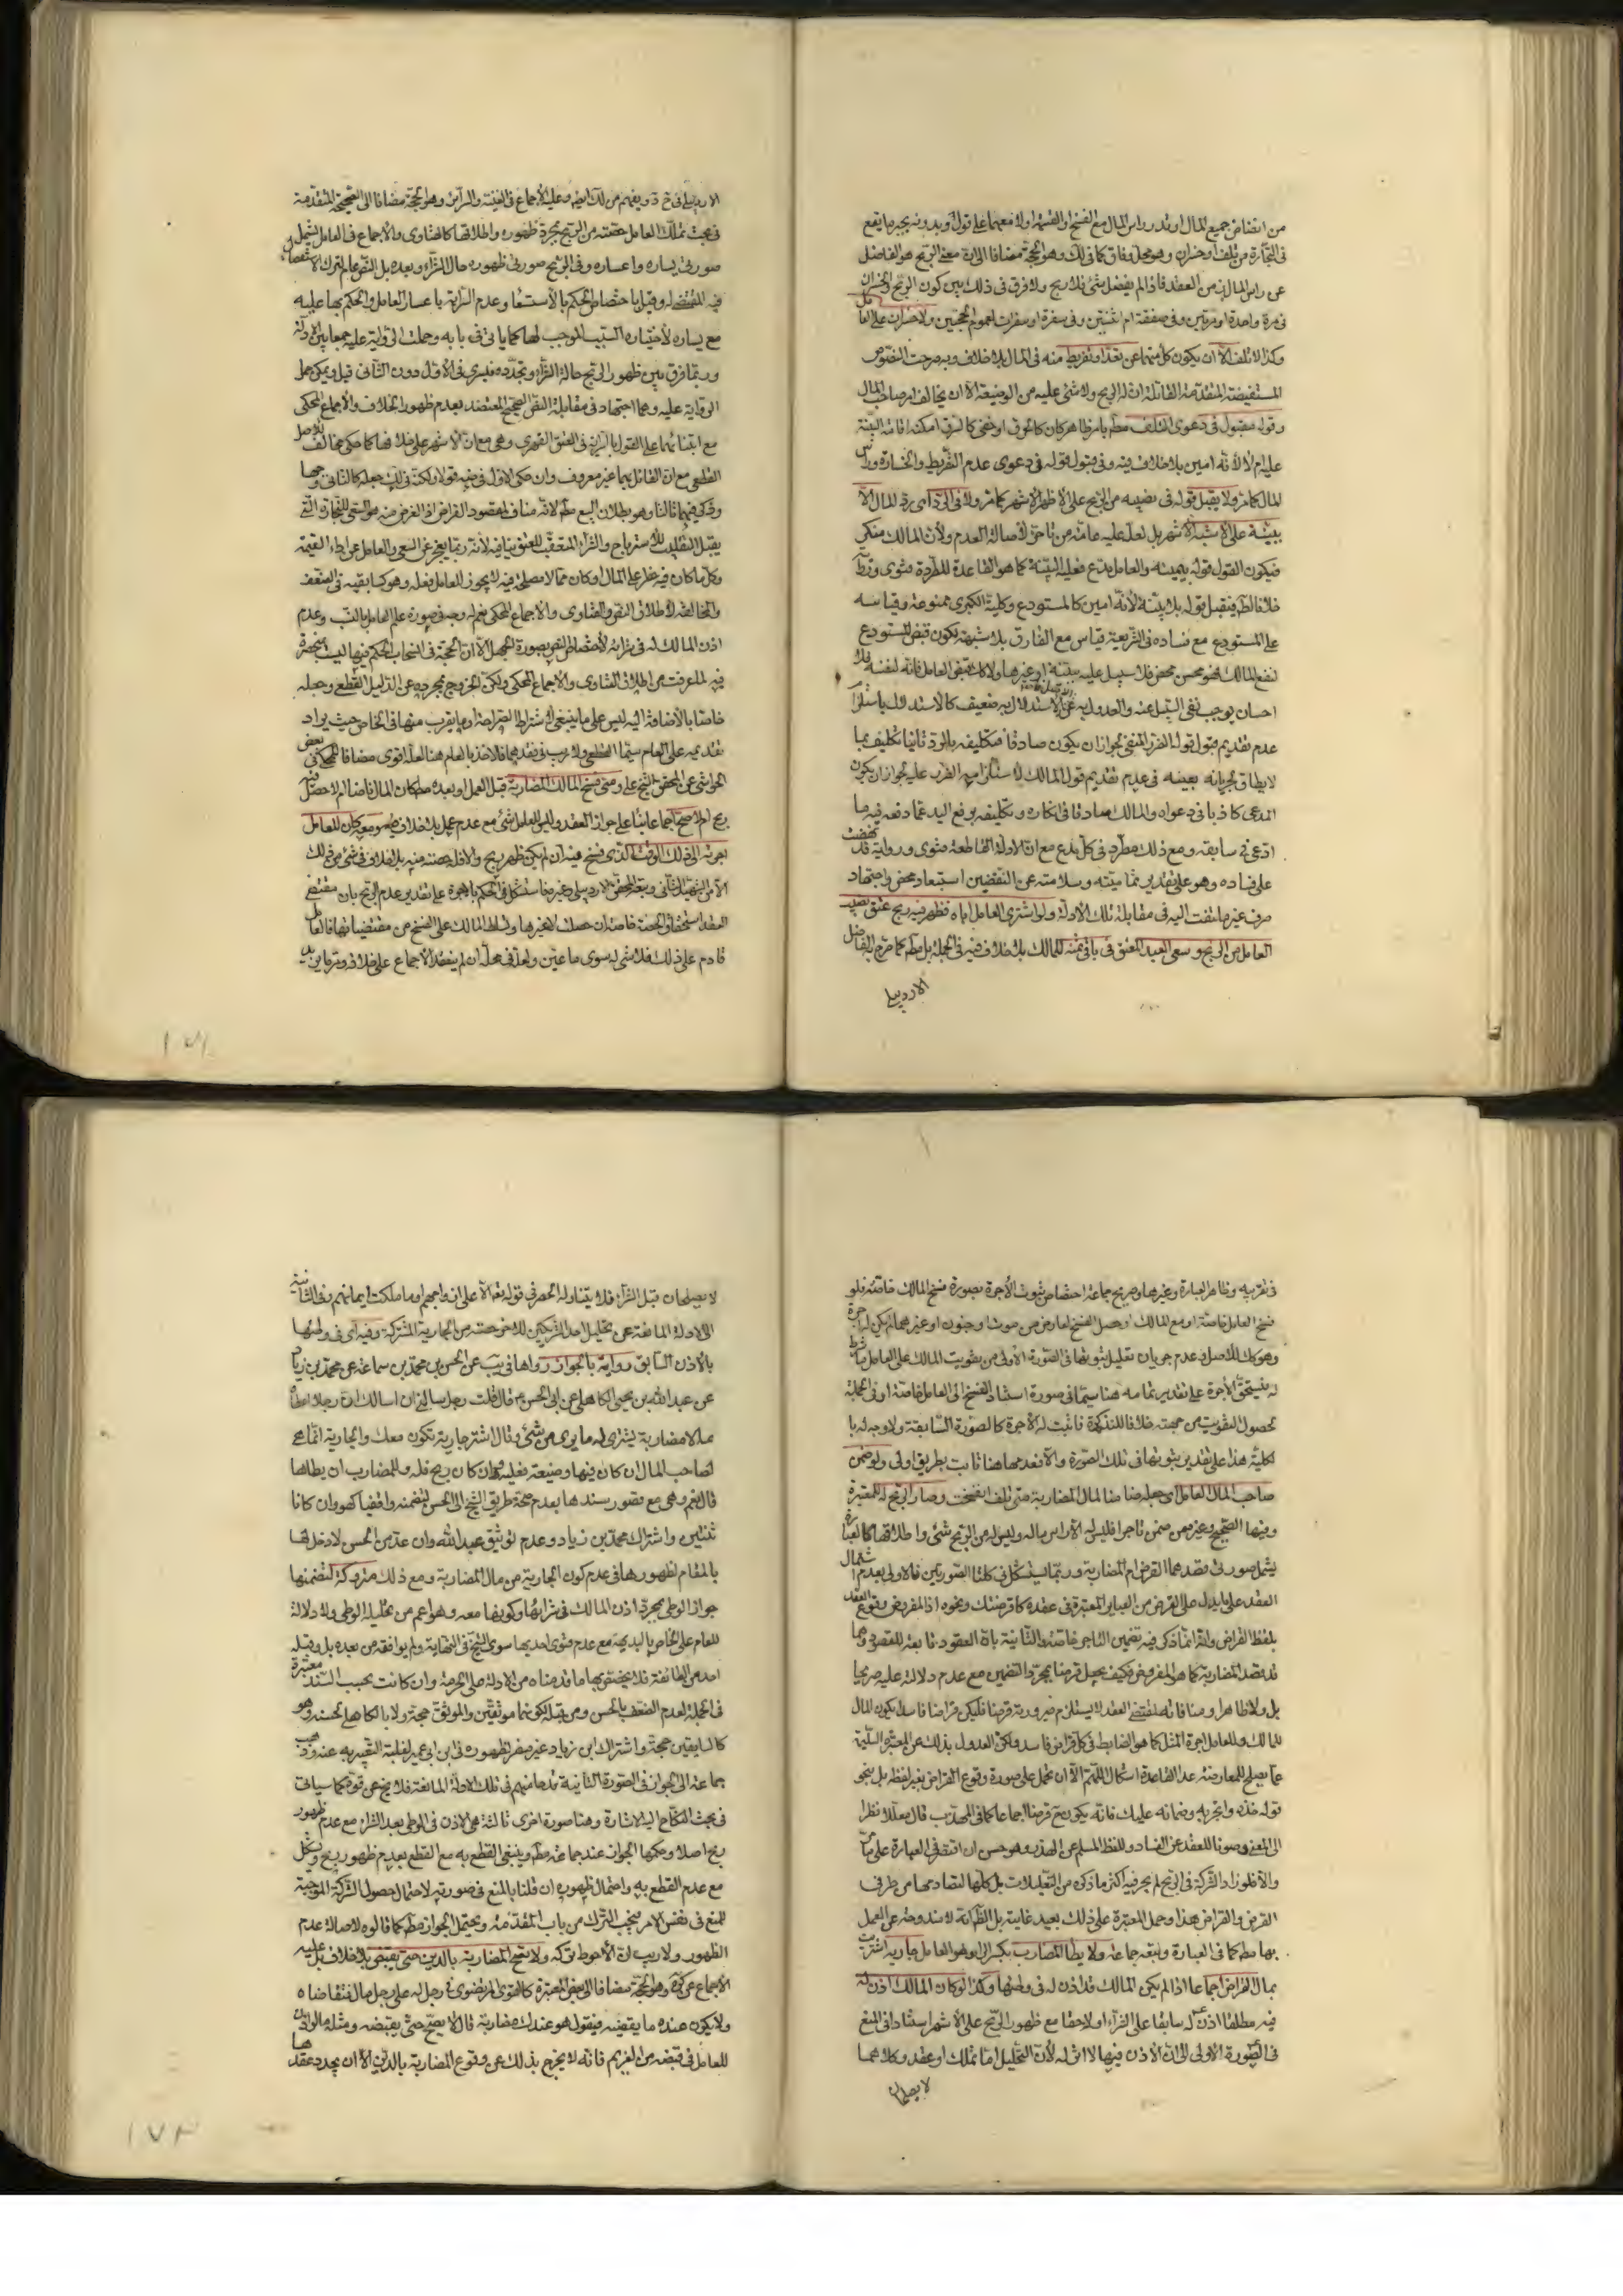 من انتفاض جميع المال او قدر راس المال مع الفسخ او القسمة او لا معهما على قول وبدونه يجبر ما يقع
فى التجارة من تلف او خسران وهو محل وفاق كما فى لك وهو الحجة مضافا الى ان معنى الربح هو الفاضل
عن راس المال فى من العقد فاذا لم يفضل شئ فلا ربح ولا فرق فى ذلك بين كون الربح والخسران
فى مرة واحدة او مرتين وفى صفقة ام اثنتين وفى سفرة او سفرات لعموم الحجتين ولا خسران على العامل
وكذا لا تلف الا ان يكون كل منهما عن تعد او تفريط منه فى المال بلا خلاف وبه صرحت النصوص
المستفيضة المتقدمة القائلة ان له الربح ولا شئ عليه من الوضيعة الا ان يخالف امر صاحب المال
وقوله مقبول فى دعوى التلف مطم بامر ظاهر كان كالغرق او خفى كالسرق امكنه اقامة البينة
عليه ام لا لانه امين بلا خلاف فيه وفى قبول قوله فى دعوى عدم التفريط والخسارة وراس
المال كما مر ولا يقبل قوله فى نصيبه من الربح على الاظهر الاشهر كما مر ولا فى الرد اى رد المال الا
ببينة على الاشبه الاشهر بل لعله عليه عامة من تاخر لاصالة العدم ولان المالك منكر
فيكون القول قوله بيمينه والعامل مدع فعليه البينة كما هو القاعدة المطردة فتوى ورواية
خلافا لط فيقبل قوله بلا بينة لانه امين كالمستودع وكلية الكبرى ممنوعة وقياسه
على المستودع مع فساده فى الشريعة قياس مع الفارق بلا شبهة لكون قبض المستودع
لنفع المالك فهو محسن محض فلا سبيل عليه ببينة او غيرها ولا كك قبض العامل فانه لنفسه فلا
احسان يوجب نفى السبيل عنه والعدول به عن الاستدلال به ضعيف كالاستدلال باستلزام
عدم تقديم قبول قوله الضرر المنفى لجواز ان يكون صادقا فتكليفه بالرد ثانيا تكليف بما
لا يطاق لجريانه بعينه فى عدم تقديم قول المالك لاستلزامه الضرر عليه لجواز ان يكون
المدعى كاذبا فى دعواه والمالك صادقا فى انكاره وتكليفه برفع اليد عما دفعه فيه ما
ادعى فى سابقه ومع ذلك مطرد فى كل مدع مع ان الادلة القاطعة فتوى ورواية قد نهضت
على فساده وهو على تقدير تماميته وسلامته عن النقضين استبعاد محض واجتهاد
صرف غير ملتفت اليه فى مقابلة تلك الادلة ولو اشترى العامل اباه فظهر فيه ربح عتق نصيب
العامل من الربح وسعى العبد المعتق فى باقى ثمنه للمالك بلا خلاف فيه فى الجملة بل مطم كما صرح به الفاضل
الاردبيلى
الاردبيلى فى ح د ويفهم من لك ايضا وعليه الاجماع فى الغنية والسرائر وهو الحجة مضافا الى الصحيحة المتقدمة
فى بحث تملك العامل حصته من الربح بمجرد ظهوره واطلاقها كالفتاوى والاجماع فى العامل يشمل
صورتى يساره واعساره وفى الربح صورتى ظهوره حال الشراء وبعده بل النص عام لترك الاستفصال
فيه المقتضى له وقيل باختصاص الحكم بالاستسعاء وعدم السراية باعسار العامل والحكم بها عليه
مع يساره لاختياره السبب الموجب لها كما ياتى فى بابه وحملت الرواية عليه جمعا بين الادلة
وربما فرق بين ظهور الربح حالة الشراء وتجدده فيسرى فى الاول دون الثانى قيل ويمكن حمل
الرواية عليه وهما اجتهاد فى مقابلة النص الصحيح المعتضد بعدم ظهور الخلاف والاجماع المحكى
مع ابتنائهما على القول بالسراية فى العتق القهرى وهى مع ان الاشهر على خلافها كما حكى مخالف للاصل
القطعى مع ان القائل بهما غير معروف وان حكى الاول فى ضه قولا ولكنه فى لك جعله كالثانى وجها
وذكر فيهما ثالثا وهو بطلان البيع مطم لانه مناف لمقصود القراض اذ الغرض منه هو السعى للتجارة التى
يقبل التقليب للاسترباح والشراء المتعقب للعتق ينافيه لانه ربما يعجز عن السعى والعامل عن اداء القيمة
وكل ما كان فيه خطر على المال او كان مما لا مصلحة فيه لا يجوز للعامل فعله وهو كسابقيه فى الضعف
والمخالفة لاطلاق النص والفتاوى والاجماع المحكى نعم له وجه فى صورة علم العامل بالنسب وعدم
اذن المالك له فى شرائه لاختصاص النص بصورة الجهل الا ان الحجة فى انسحاب الحكم فيها ليست منحصرة
فيه لما عرفت من اطلاق الفتاوى والاجماع المحكى ولكن الخروج بمجرده عن الدليل القطعى وجعله
خاصا بالاضافة اليه ليس على ما ينبغى لاشتراط الصراحة او ما يقرب منها فى الخاص حيث يراد
تقديمه على العام سيما القطعى ولا ريب فى فقدهما فالاخذ بالعام هنا لعله اقوى مضافا للمحكى فى بعض
الحواشى عن المحقق الشيخ على ومتى فسخ المالك المضاربة قبل العمل او بعده مطم كان المال ناضا ام لا حصل فيه
ربح ام لا صح اجماعا بناء على جواز العقد وليس للعامل شئ مع عدم عمل بلا خلاف ومعه كان للعامل
اجرته الى ذلك الوقت الذى فسخ فيه ان لم يكن ظهر ربح والا فله حصته منه بلا خلاف فى شئ من ذلك
الا من الشهيد الثانى وتبعه المحقق الاردبيلى وغيره فاستشكل فى الحكم بالاجرة على تقدير عدم الربح بان مقتضى
العقد استحقاق الحصة خاصة ان حصلت لا غيرها وتسلط المالك على الفسخ من مقتضياتها فالعامل
قادم على ذلك فلا شئ له سوى ما عين ولعله فى محله ان لم ينعقد الاجماع على خلافه وتردد
فى قربه وظاهر العبارة وغيرها وصريح جماعة اختصاص ثبوت الاجرة بصورة فسخ المالك خاصة فلو
فسخ العامل خاصة او مع المالك او حصل الفسخ لعارض من موت او جنون او غيرهما لم يكن له اجرة
وهو كك للاصل وعدم جريان تعليل ثبوتها فى الصورة الاولى من تفويت المالك على العامل ما شرط
له فيستحق الاجرة على تقدير تمامه هنا سيما فى صورة استناد الفسخ الى العامل خاصة او فى الجملة
لحصول التفويت من جهته خلافا للتذكرة فاثبت له الاجرة كالصورة السابقة ولا وجه له با
لكلية هذا على تقدير ثبوتها فى تلك الصورة والا فعدمها هنا ثابت بطريق اولى ولو ضمن
صاحب المال العامل اى جعله ضامنا لمال المضاربة متى تلف انفسخت وصار الربح له للمعتبرة
وفيها الصحيح وغيره من ضمن تاجرا فليس له الا راس ماله وليس له من الربح شئ واطلاقها كالعبارة
يشمل صورتى قصدهما القرض ام المضاربة وربما يستشكل فى كلتا الصورتين فالاولى بعدم اشتمال
العقد على ما يدل على القرض من العبائر المعتبرة فى عقده كاقرضتك ونحوه اذ المفروض وقوع العقد
بلفظ القراض وانما ذكر فيه تضمين التاجر خاصة والثانية بان العقود تابعة للقصود وهما
قد قصد المضاربة كما هو المفروض فكيف يجعل قرضا بمجرد التضمين مع عدم دلالة عليه صريحا
بل ولا ظاهرا ومنافاته لمقتضى العقد لا يستلزم صيرورته قرضا فليكن قراضا فاسدا يكون المال
للمالك وللعامل اجرة المثل كما هو الضابط فى كل قراض فاسد ولكن العدول بذلك عن المعتبر السليمة
عما يصلح للمعارضة عدا القاعدة اشكال اللهم الا ان تحمل على صورة وقوع القراض بغير لفظه بل بنحو
قوله خذه واتجر به وضمانه عليك فانه يكون ح قرضا اجماعا كما فى المهذب قال معللا نظرا
الى المعنى وصونا للعقد عن الفساد وللفظ المسلم عن الهذر وهو حسن ان اقتصر فى العبارة على ما مر
والا فلو زاد الشركة فى الربح لم يجر فيه اكثر ما ذكره من التعليلات بل كلها لتصادمها من طرفى
القرض والقراض هذا وحمل المعتبرة على ذلك بعيد غايته بل الظ انه لا مندوحة عن العمل
بها مطم كما فى العبارة وتبعه جماعة ولا يطا المضارب بكسر الراء وهو العامل جارية اشتريت
بمال القراض اجماعا اذا لم يكن المالك قد اذن له فى وطئها وكذا لو كان المالك اذن له
فيه مطلقا اذن له سابقا على الشراء او لاحقا مع ظهور الربح على الاشهر استنادا فى المنع
فى الصورة الاولى الى ان الاذن فيها لا اثر له لان التحليل اما تملك او عقد وكلاهما
لا يصلحان
لا يصلحان قبل الشراء فلا يتناوله الحصر فى قوله تعالى الا على ازواجهم او ما ملكت ايمانهم وفى الثانية
الى الادلة المانعة عن تحليل احد الشريكين للاخر حصته من الجارية المشتركة وفيه اى فى وطئها
بالاذن السابق رواية بالجواز رواها فى يب عن الحسن بن محمد بن سماعة عن محمد بن زياد
عن عبد الله بن يحيى الكاهلى عن ابى الحسن ع قال قلت رجل سالنى ان اسالك ان رجلا اعطاه
مالا مضاربة يشترى له ما يرى من شئ وقال اشتر جارية تكون معك والجارية انما هى
لصاحب المال ان كان فيها وضيعة فعليه وان كان ربح فله وللمضارب ان يطاها
قال نعم وهى مع قصور سندها بعدم صحة طريق الشيخ الى الحسن لتضمنه واقفيا كهو وان كانا
ثقتين واشتراك محمد بن زياد وعدم توثيق عبد الله وان عد من الحسن لا دخل لها
بالمقام لظهورها فى عدم كون الجارية من مال المضاربة ومع ذلك متروكة لتضمنها
جواز الوطى بمجرد اذن المالك فى شرائها وكونها معه وهو اعم من تحليله الوطى ولا دلالة
للعام على الخاص بالبديهة مع عدم فتوى احد بها سوى الشيخ فى النهاية ولم يوافقه من بعده بل وقبله
احد من الطائفة فلا يخصص بها ما قدمناه من الادلة على الحرمة وان كانت بحسب السند معتبرة
فى الجملة لعدم الضعف بالحسن ومن قبله لكونهما موثقين والموثق حجة ولا بالكاهلى لحسنه وهو
كالسابقين حجة واشتراك ابن زياد غير مضر لظهوره فى ابن ابى عمير لغلبة التعبير به عنه وذهب
جماعة الى الجواز فى الصورة الثانية قدحا منهم فى تلك الادلة المانعة فلا يخ عن قوة كما سياتى
فى بحث النكاح اليه الاشارة وهنا صورة اخرى ثالثة هى الاذن فى الوطى بعد الشراء مع عدم ظهور
ربح اصلا وحكمها الجواز عند جماعة مطم وينبغى القطع به مع القطع بعدم ظهور ربح ويشكل
مع عدم القطع به واحتمال ظهوره ان قلنا بالمنع فى صورته لاحتمال حصول الشركة الموجبة
للمنع فى نفس الامر فيجب الترك من باب المقدمة ويحتمل الجواز مطم كما قالوه لاصالة عدم
الظهور ولا ريب ان الاحوط تركه ولا تصح المضاربة بالدين حتى يقبض بلا خلاف بل عليه
الاجماع عن كره وهو الحجة مضافا الى بعض المعتبرة كالقوى المرتضوى فى رجل له على رجل مال فتقاضاه
ولا يكون عنده ما يقضيه فيقول هو عندك مضاربة قال لا يصلح حتى يقبضه ومثله ما لو اذن
للعامل فى قبضه من الغريم فانه لا يخرج بذلك عن وقوع المضاربة بالدين الا ان يجدد عقدها